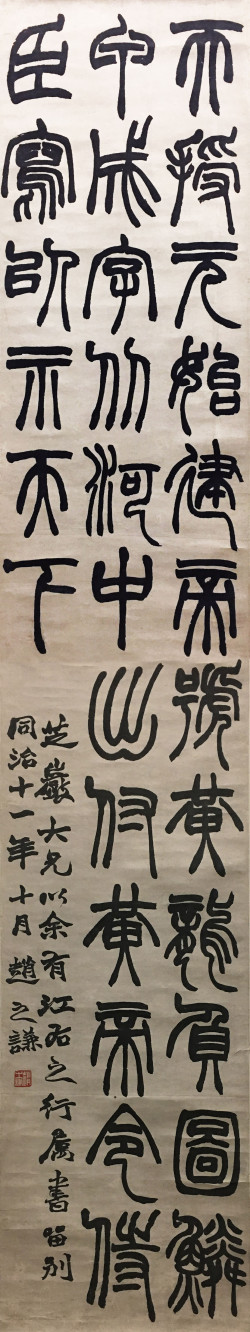 天授元始建帝號黃龍負圖鱗
甲成字从河中出付黃帝令侍
臣寫以示天下
芝巖大兄以余有江右之行屬書留別
同治十一年十月趙之謙